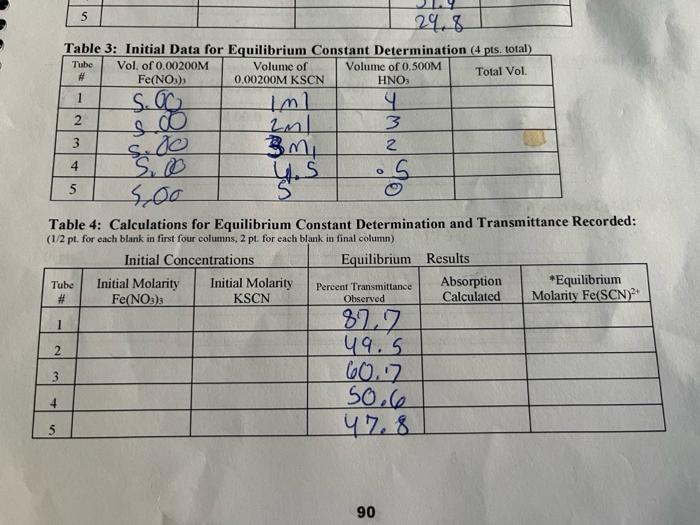 5
29.8
Table 3: Initial Data for Equilibrium Constant Determination (4 pts. total)
Tube # Vol. of 0.00200M Fe(NO₃)₃ Volume of 0.00200M KSCN Volume of 0.500M HNO₃ Total Vol.
1 5.00 1ml 4
2 5.00 2ml 3
3 5.00 3ml 2
4 5.00 4.5 .5
5 5,00 5 0
Table 4: Calculations for Equilibrium Constant Determination and Transmittance Recorded:
(1/2 pt. for each blank in first four columns, 2 pt. for each blank in final column)
Initial Concentrations Equilibrium Results
Tube # Initial Molarity Fe(NO₃)₃ Initial Molarity KSCN Percent Transmittance Observed Absorption Calculated *Equilibrium Molarity Fe(SCN)²⁺
1 87.7
2 49.5
3 60.7
4 50.6
5 47.8
90